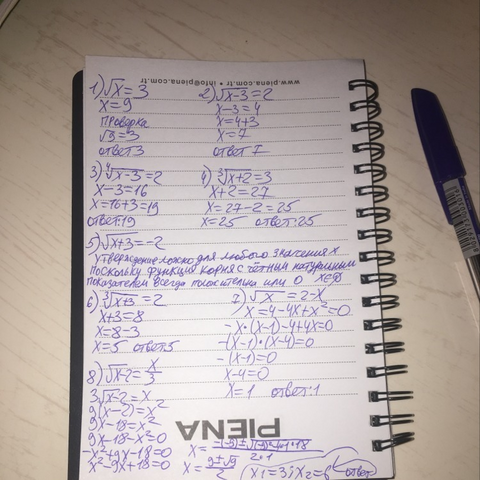 www.piena.com.tr • info@piena.com.tr
1) √x = 3
x = 9
Проверка
√9 = 3
ответ 3
2) √x-3 = 2
x-3 = 4
x = 4+3
x = 7
ответ 7
3) ∜x-3 = 2
x-3 = 16
x = 16+3 = 19
ответ: 19
4) ∛x+2 = 3
x+2 = 27
x = 27-2 = 25
x = 25 ответ: 25
5) √x+3 = -2
Утверждение ложно для любого значения x
поскольку функция корня с чётным натуральным
показателем всегда положительна или 0 x∈∅
6) ∛x+3 = 2
x+3 = 8
x = 8-3
x = 5 ответ: 5
7) √x = 2-x
x = 4-4x+x² = 0
-x•(x-1)-4+4x=0
-(x-1)•(x-4)=0
-(x-1)=0
x-4=0
x=1 ответ: 1
8) √x-2 = x/3
3√x-2 = x
9(x-2) = x²
9x-18 = x²
9x-18-x²=0
-x²+9x-18=0
x²-9x+18=0
x = 9±√9/2
x₁=3; x₂=6 ответ
PIENA